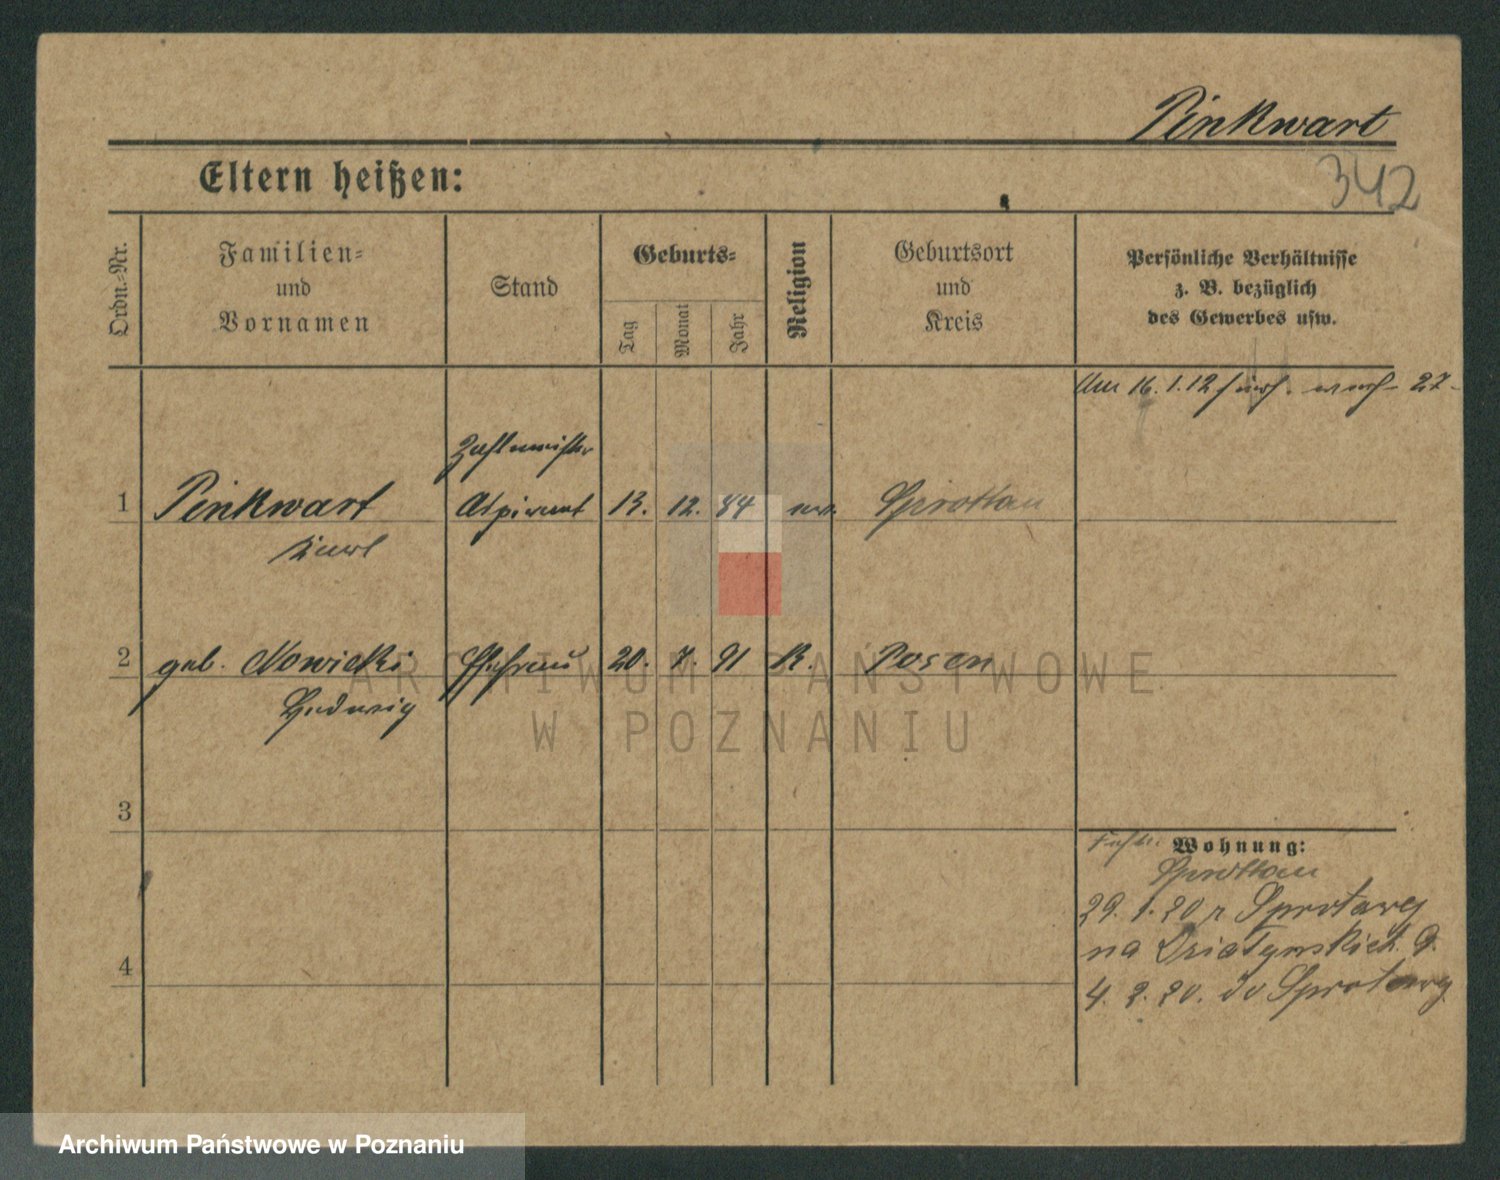 Pinkwart
342
Eltern heißen:
Ordn.-Nr.
Familien-
und
Vornamen
Stand
Geburts-
Tag
Monat
Jahr
Religion
Geburtsort
und
Kreis
Persönliche Verhältnisse
z. B. bezüglich
des Gewerbes usw.
16.1.12
27
Zahlmeister
1 Pinkwart Aspirant 13. 12. 84 ev. Sprottau
Karl
2 geb. Nowicki Ehefrau 20. 7. 91 K. Posen
Hedwig
ARCHIWUM PAŃSTWOWE
W POZNANIU
3
Wohnung:
Sprottau
29. 1. 20 z Sprotawy
na Dzialynskich 9.
4
4. 2. 20. do Sprotawy
Archiwum Państwowe w Poznaniu